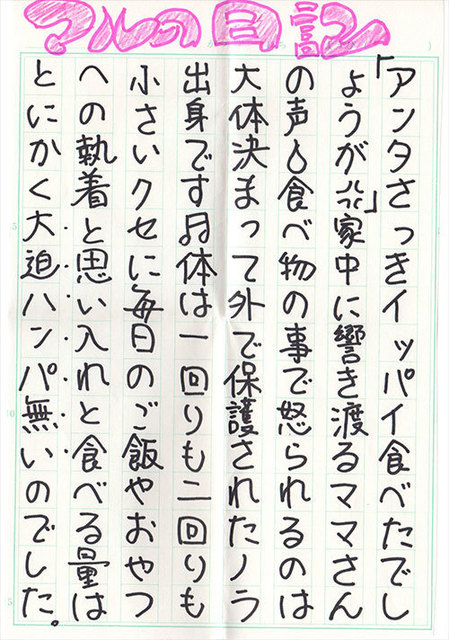 マルの日記
「アンタさっきイッパイ食べたでし
ょうが💢」家中に響き渡るママさん
の声💧食べ物の事で怒られるのは
大体決まって外で保護されたノラ
出身です♫体は一回りも二回りも
小さいクセに毎日のご飯やおやつ
への執着と思い入れと食べる量は
とにかく大迫ハンパ無いのでした。